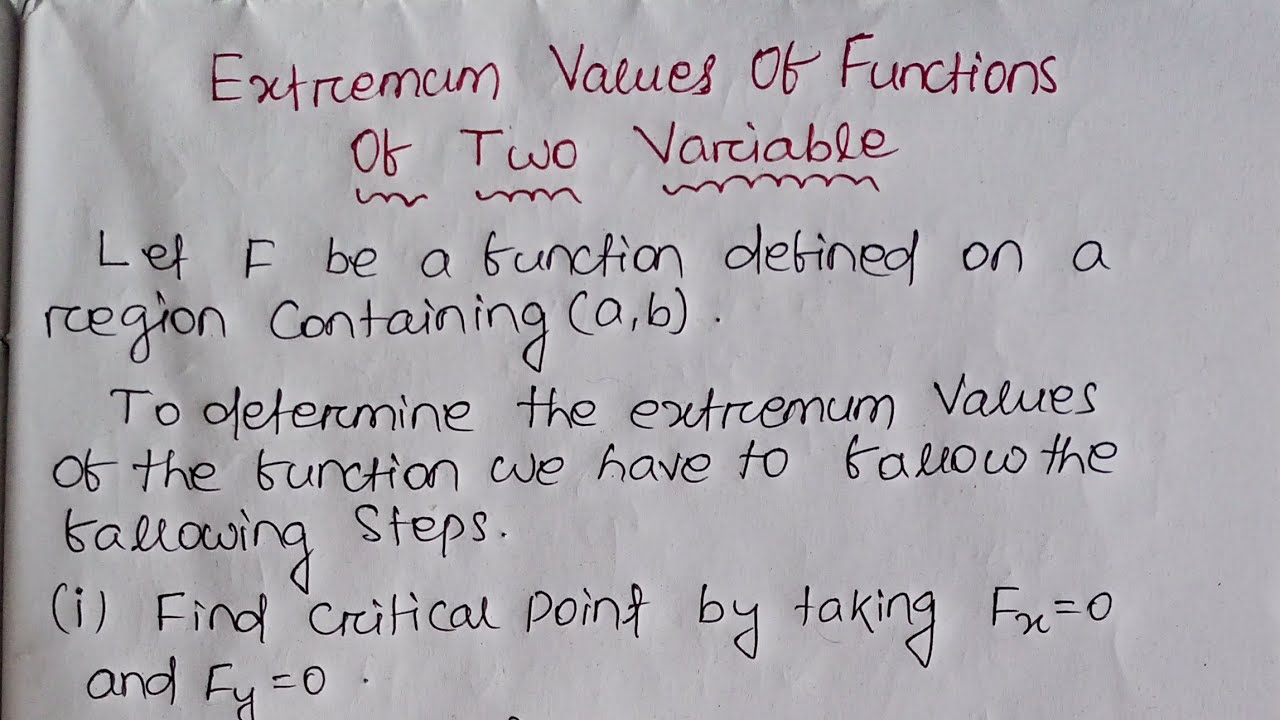 Extremum Values Of Functions
Of Two Variable
Let F be a function defined on a
region Containing (a,b).
To determine the extremum Values
of the function we have to fallow the
fallowing Steps.
(i) Find critical point by taking Fx=0
and Fy=0.